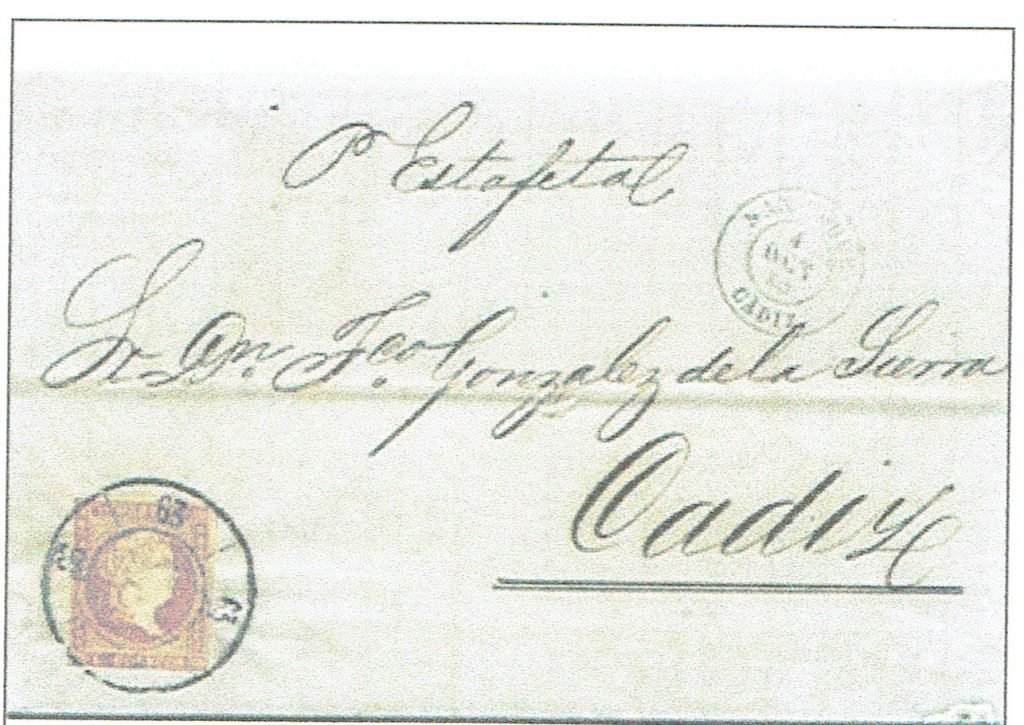 Pr Estafeta
Sr. Dn. Fco. Gonzalez de la Sierra
Cadiz
4
OCT
CADIZ
63
63